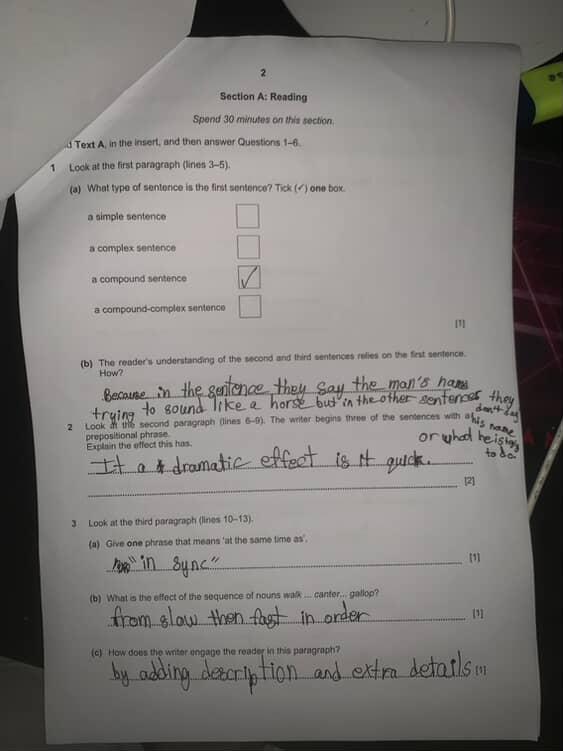 2
Section A: Reading
Spend 30 minutes on this section.
Text A, in the insert, and then answer Questions 1–6.
1 Look at the first paragraph (lines 3–5).
(a) What type of sentence is the first sentence? Tick (✓) one box.
a simple sentence
a complex sentence
a compound sentence ✓
a compound-complex sentence
[1]
(b) The reader's understanding of the second and third sentences relies on the first sentence.
How?
Because in the sentence they say the man's name
trying to sound like a horse but in the other sentences they
don't say
his name
or what he is
to do.
2 Look at the second paragraph (lines 6–9). The writer begins three of the sentences with a
prepositional phrase.
Explain the effect this has.
It a dramatic effect is it quick.
[2]
3 Look at the third paragraph (lines 10–13).
(a) Give one phrase that means 'at the same time as'.
"in sync"
[1]
(b) What is the effect of the sequence of nouns walk ... canter... gallop?
from slow then fast in order
[1]
(c) How does the writer engage the reader in this paragraph?
by adding description and extra details
[1]